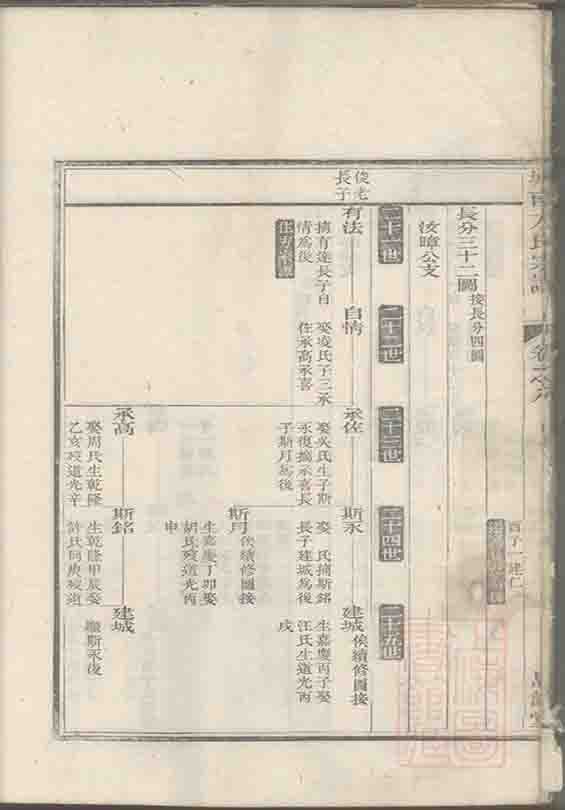 酉子一建仁
長分三十二圖接長分四圖
汝暐公支
二十一世
二十二世
二十三世
二十四世
二十五世
俊老
長子
有法
摘有達長子自
情爲後
自情
娶凌氏子三承
佐承高承喜
承佐
娶吳氏生子斯
永復摘承喜長
子斯月爲後
斯永
娶 氏摘斯銘
長子建城爲後
建城俟續修圖接
生嘉慶丙子娶
汪氏生道光丙
戌
斯月俟續修圖接
生嘉慶丁卯娶
胡氏歿道光丙
申
承高
娶周氏生乾隆
乙亥歿道光辛
斯銘
生乾隆甲辰娶
許氏同庚歿道
建城
繼斯永後